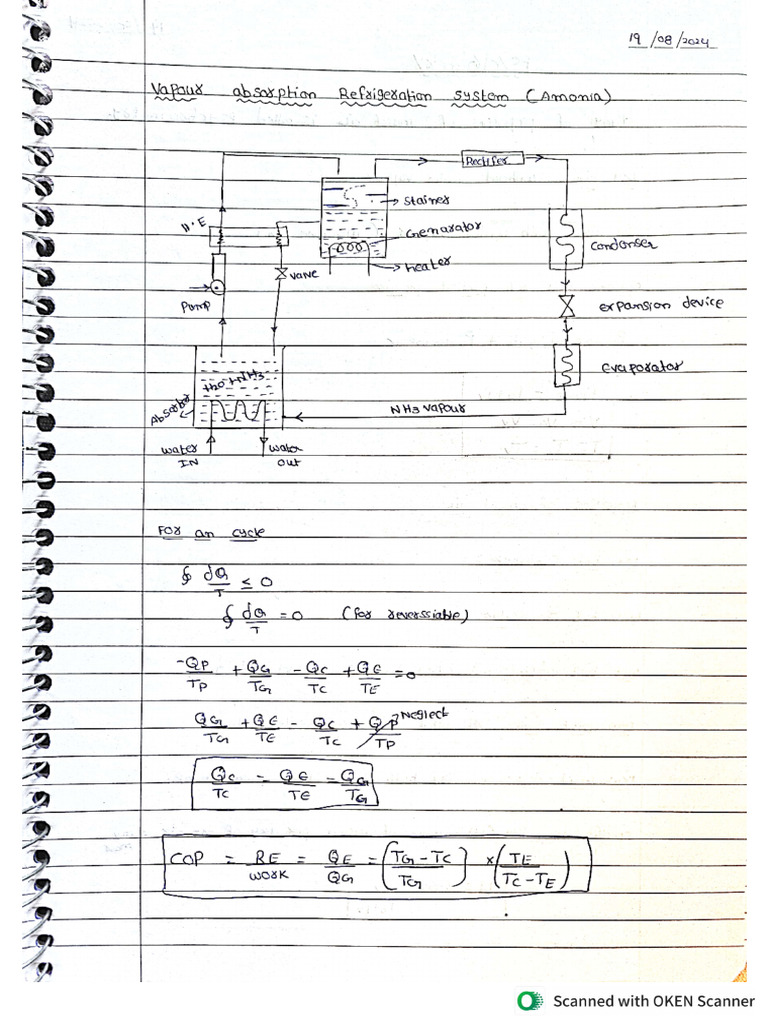 19/08/2024
Vapour absorption Refrigeration system (Amonia)
Rectifer
Stainer
H.E
Genarator
Condenser
heater
Valve
Pump
expansion device
Evaporator
H2O+NH3
Absorber
NH3 vapour
water IN
water out
For an cycle
∮ dQ/T ≤ 0
∮ dQ/T = 0 (for reverssiable)
-QP/TP + QG/TG - QC/TC + QE/TE = 0
QG/TG + QE/TE - QC/TC + QP/TP Neglect
QC/TC - QE/TE - QG/TG
COP = RE/WORK = QE/QG = (TG-TC/TG) × (TE/TC-TE)
Scanned with OKEN Scanner